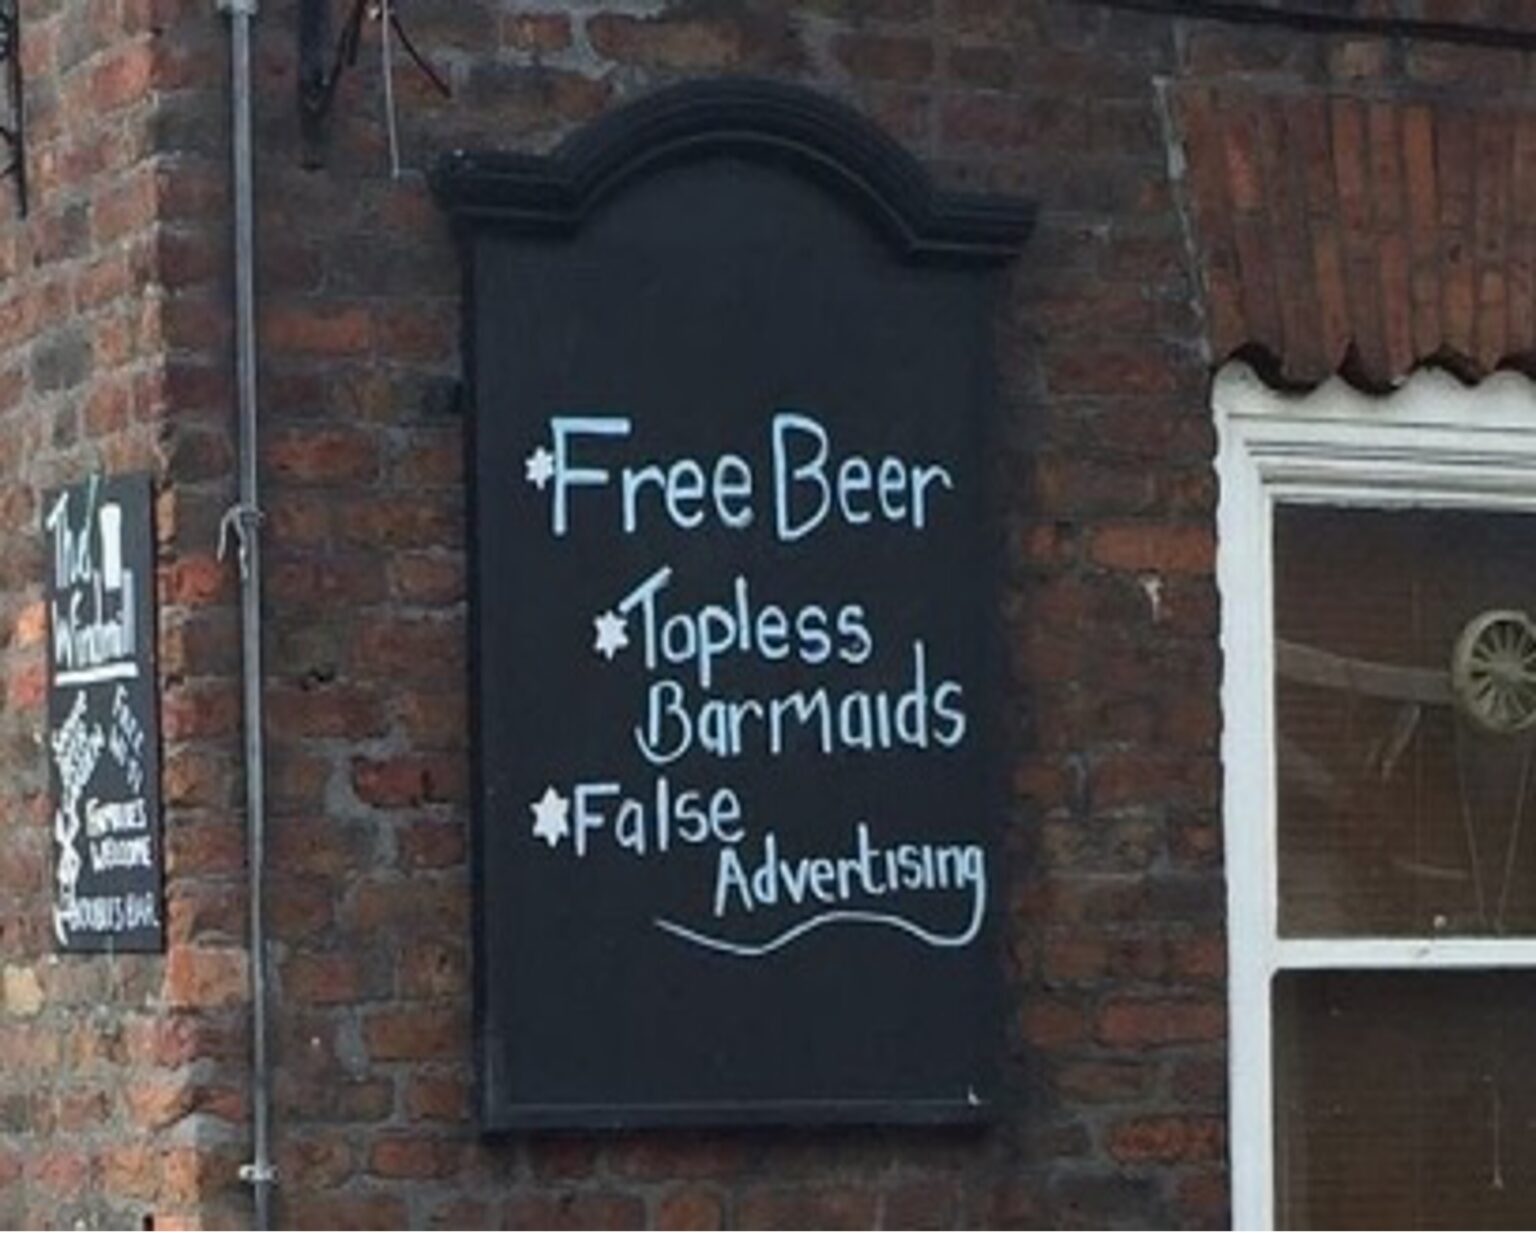 The
Windmill
FAMILIES
WELCOME
DOUBLES BAR
*Free Beer
*Topless
Barmaids
*False
Advertising